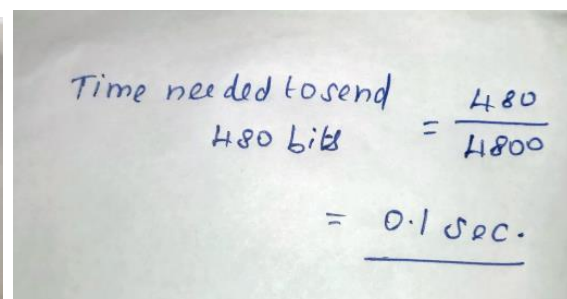 Time needed to send
480 bits = 480/4800
= 0.1 sec.